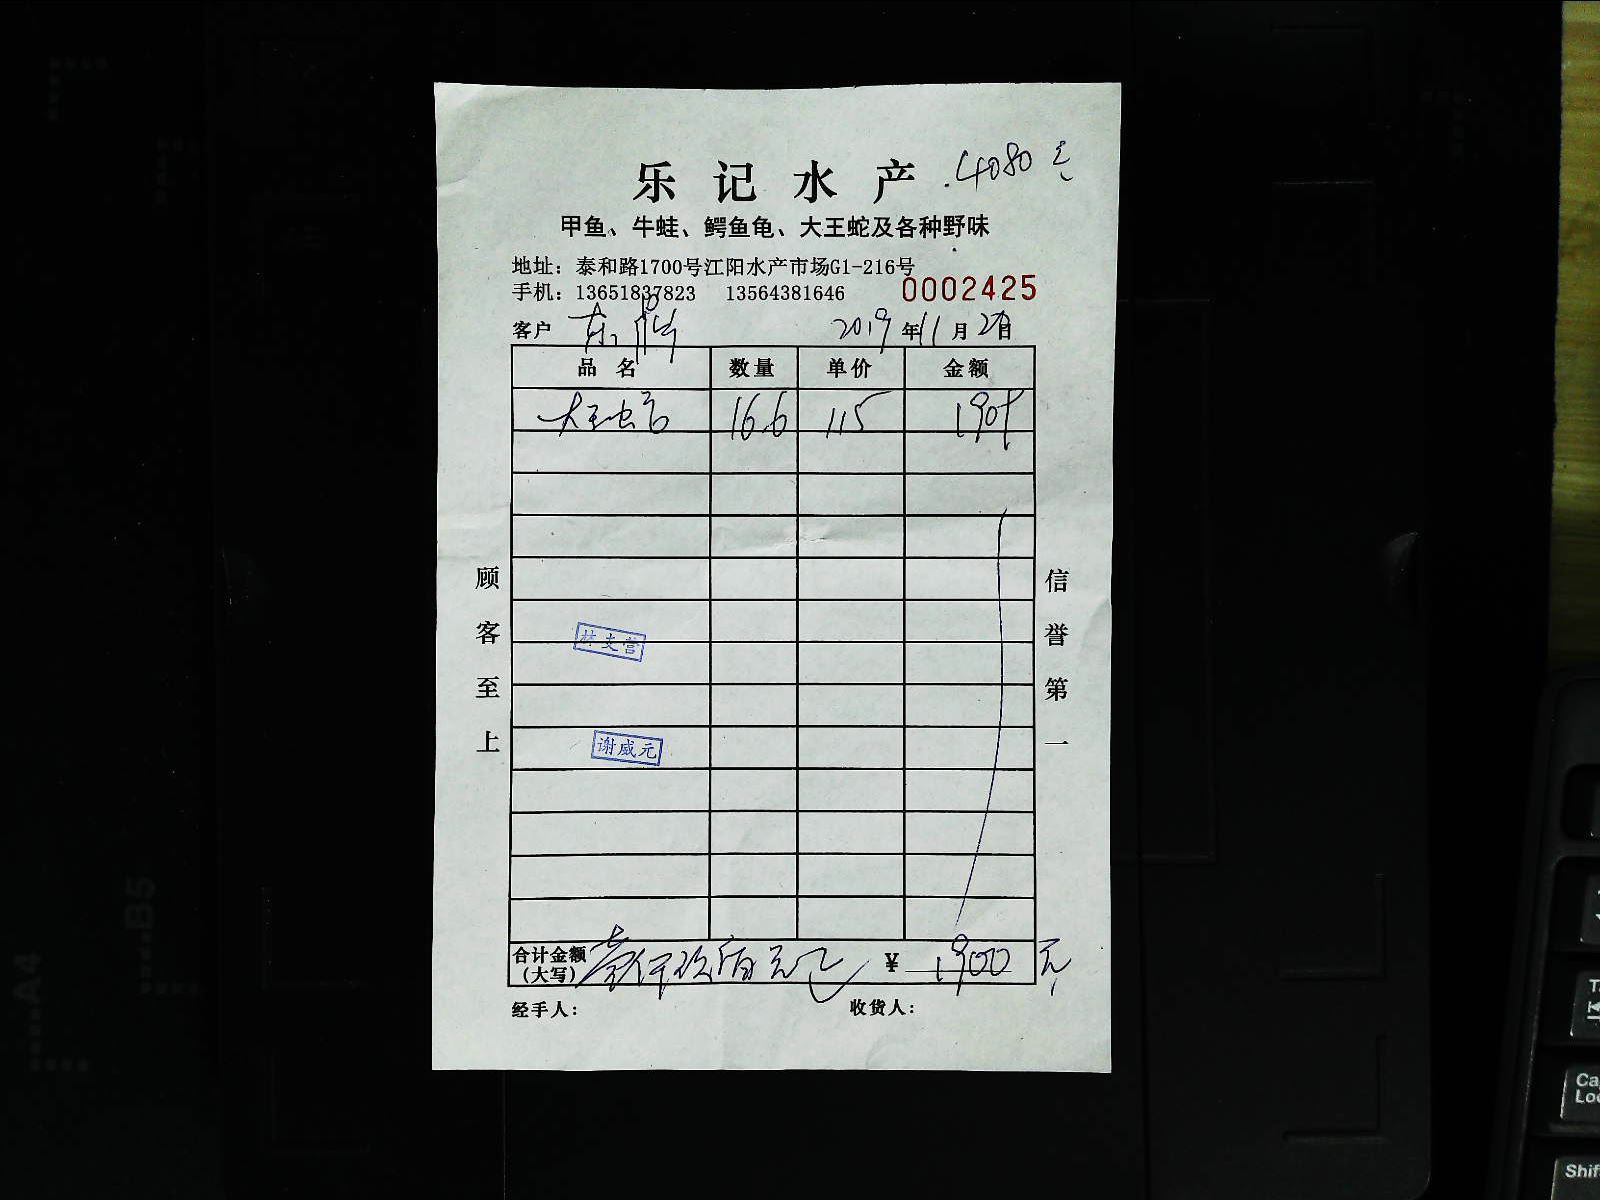 乐记水产
.4080元
甲鱼、牛蛙、鳄鱼龟、大王蛇及各种野味
地址：泰和路1700号江阳水产市场G1-216号
手机：13651837823 13564381646
0002425
客户 东
2019年11月20日
品名 数量 单价 金额
大王蛇 16.6 115 1909
顾客至上
信誉第一
林支营
谢威元
合计金额（大写） 壹仟玖佰元 ￥ 1900元
经手人： 收货人：
B5
A4
Ca
Loc
Shif